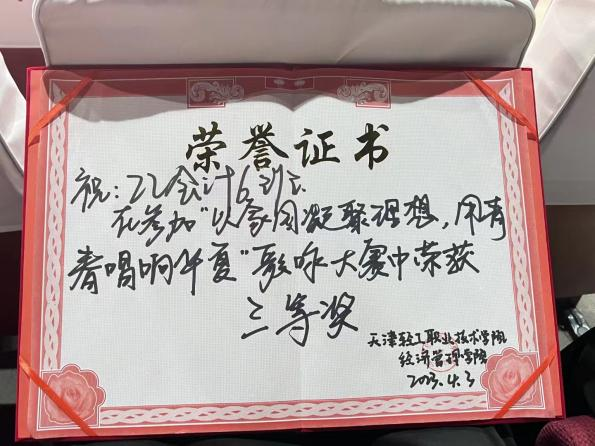 荣誉证书
祝:22会计6班
在参加“以家国凝聚理想,用青
春唱响华夏”歌咏大赛中荣获
三等奖
天津轻工职业技术学院
经济管理学院
2023.4.3